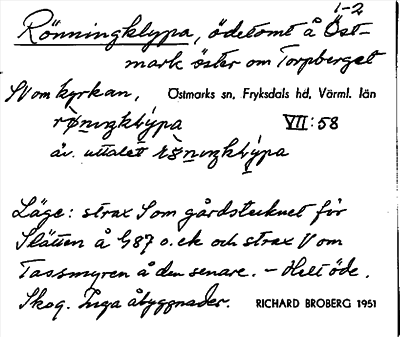 1-2
Rönningklypa, ödetomt å Öst-
mark öster om Torpberget
SV om kyrkan, Östmarks sn, Fryksdals hd, Värml. län
VII:58
äv. uttalet
Läge: strax S om gårdstecknet för
Slätten å G87 o. ek och strax V om
Tassmyren å den senare. – Helt öde.
Skog. Inga åbyggnader. RICHARD BROBERG 1951